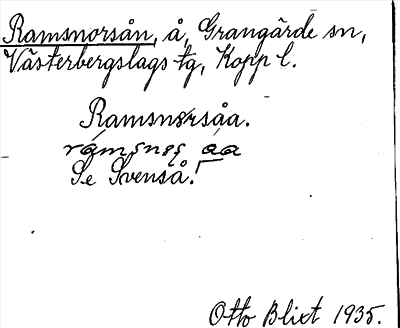 Ramsnorsån, å, Grangärde sn,
Västerbergslags tg, Kopp l.
Ramsnorsåa.
Se Svenså!
Otto Blixt 1935.